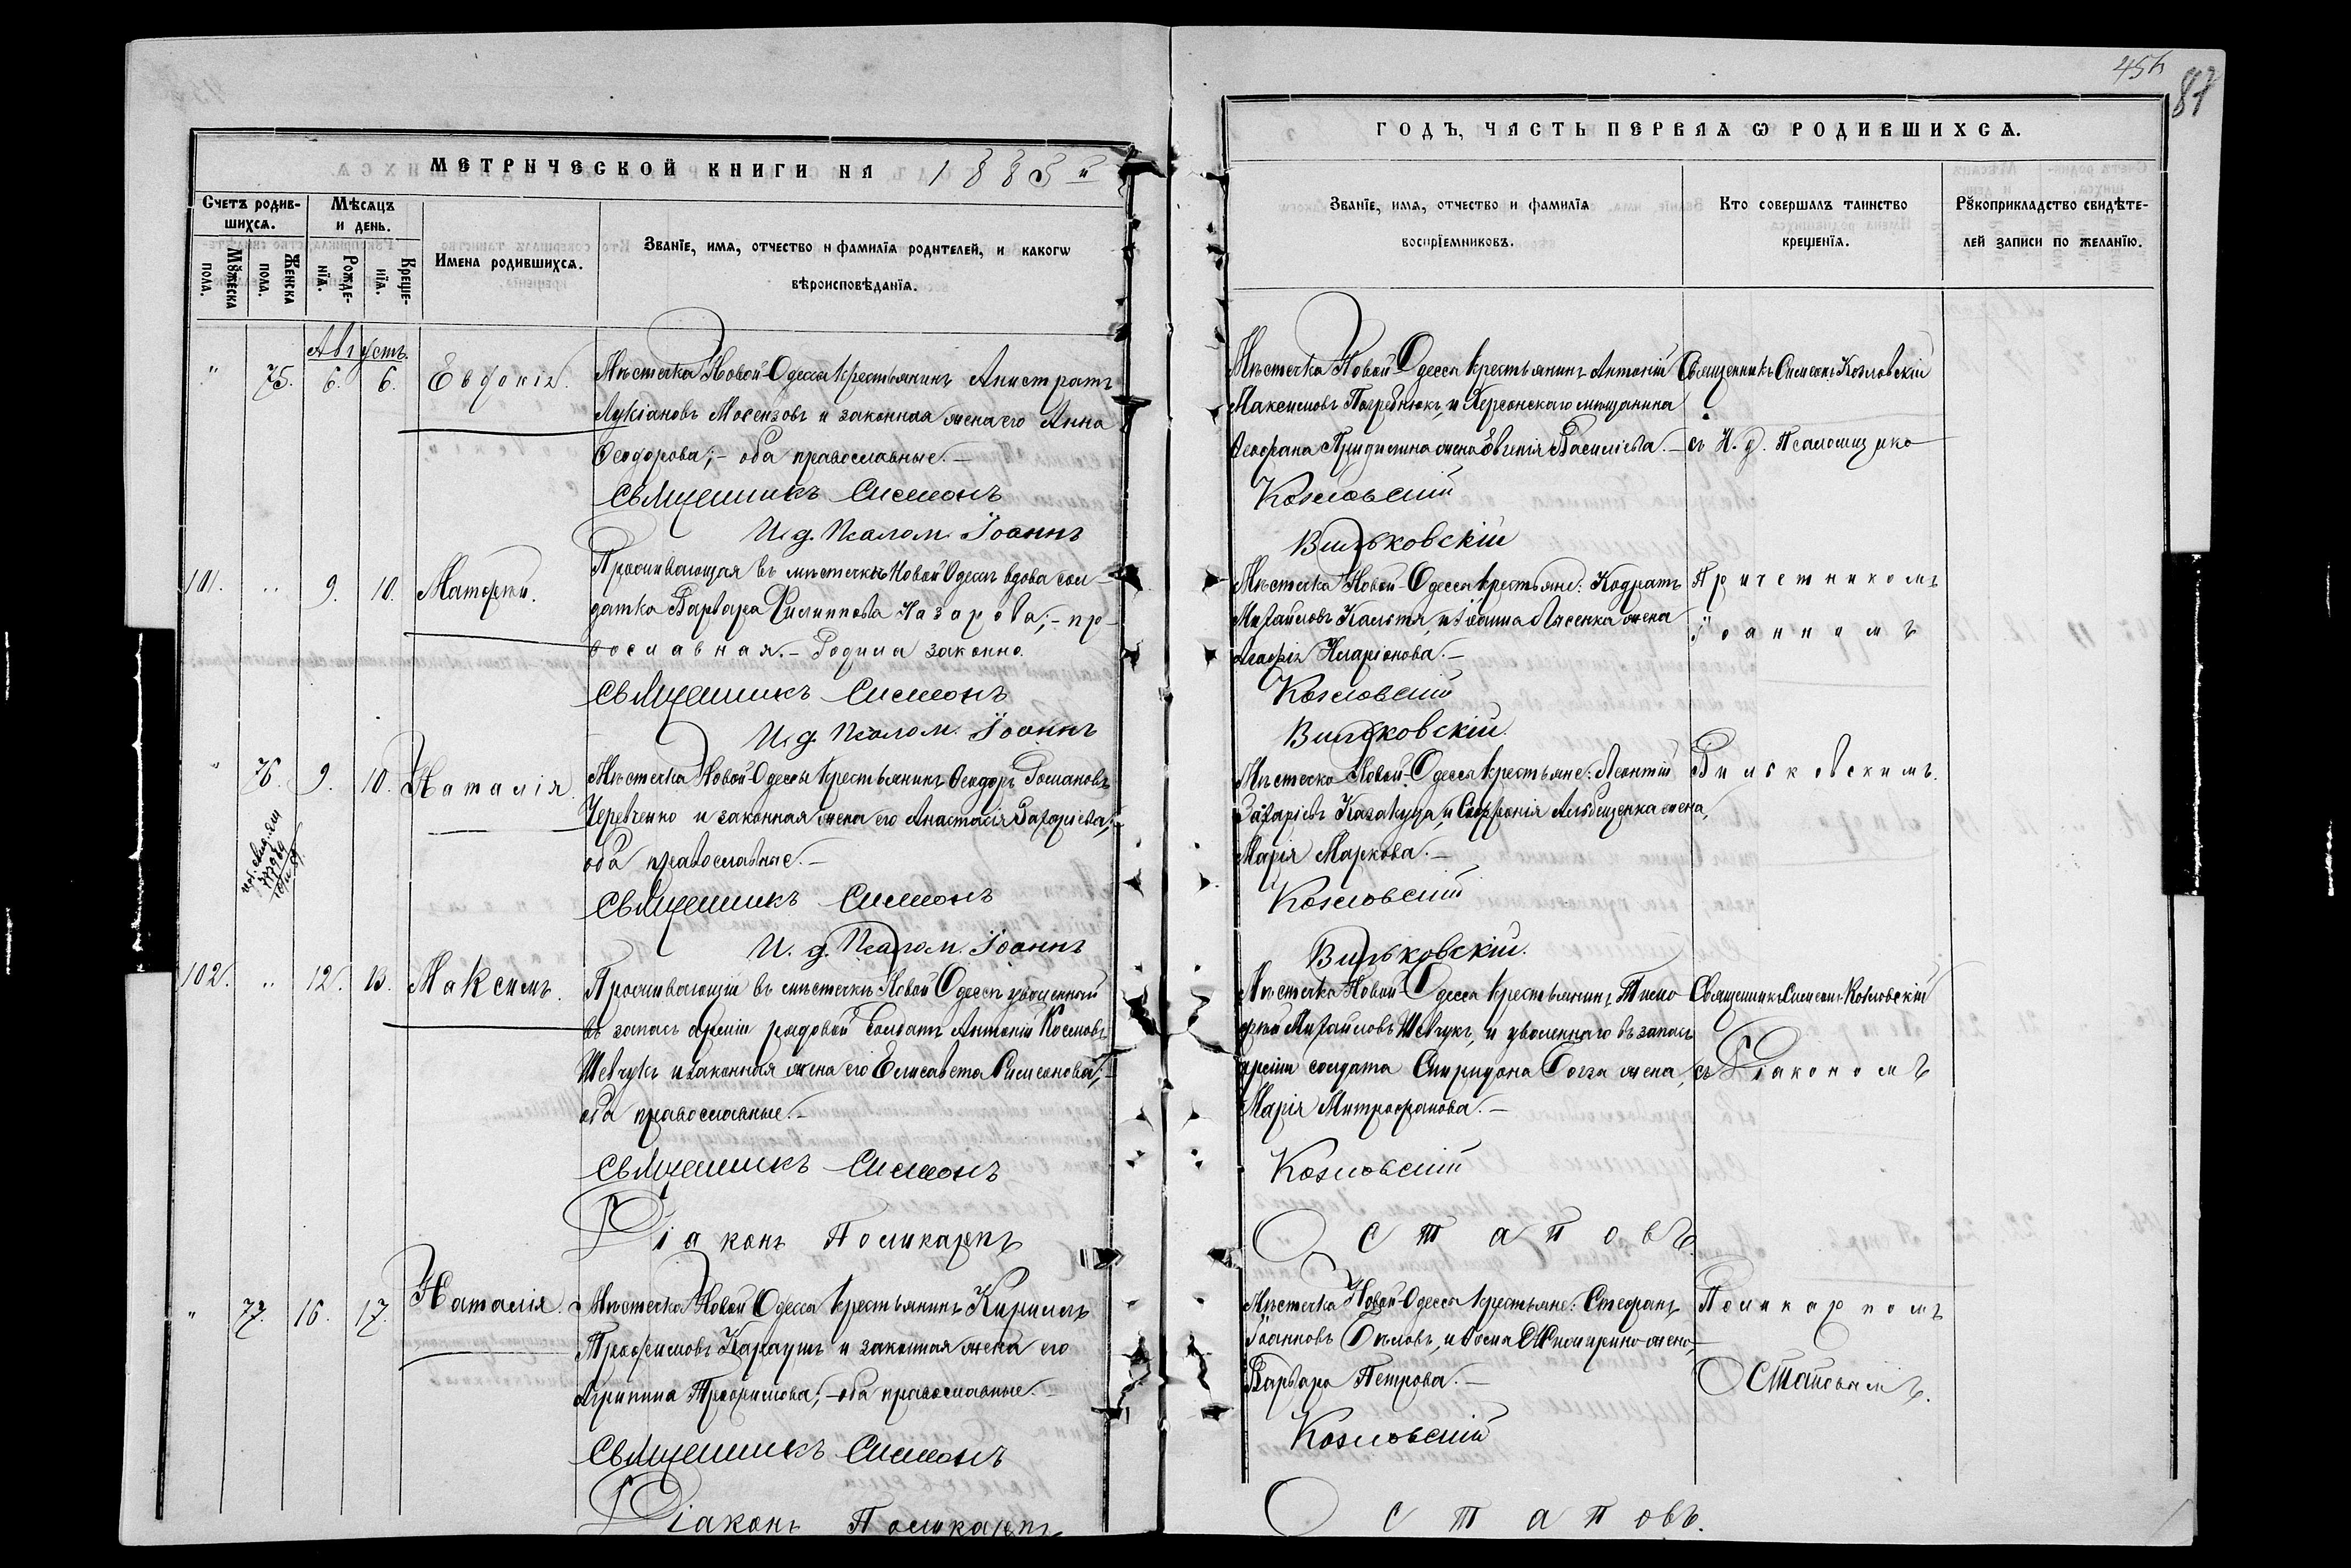 МЕТРИЧЕСКОЙ КНИГИ НА 1885й
Счетъ родив-
шихся.
Мѣсяцъ
и день.
Имена родившихся.
Званїе, имя, отчество и фамилїя родителей, и какогѡ
вѣроисповѣданїя.
Мꙋжеска
пола.
Женска
пола.
Рожде-
нїя.
Креще-
нїя.
Августъ.
" 75. 6. 6. Евдокія.
Мѣстечка Новой-Одессы крестьянинъ Анистратъ
Лукіановъ Мосензовъ и законная жена его Анна
Ѳеодорова; - оба православные. -
Священникъ Симеонъ
И. д. Псалом. Іоаннъ
101. " 9. 10. Матѳей.
Проживающая въ мѣстечкѣ Новой Одессѣ вдова сол-
датка Варвара Филиппова Назарова; - пр-
вославная. - Родила законно.
Священникъ Симеонъ
И. д. Псалом. Іоаннъ
" 76. 9. 10. Наталія.
Мѣстечка Новой-Одессы крестьянинъ Ѳеодоръ Романовъ
Черевченко и законная жена его Анастасія Захаріева; -
оба православные. -
Священникъ Симеонъ
И. д. Псалом. Іоаннъ
102. " 12. 13. Максимъ.
Проживающій въ мѣстечкѣ Новой Одессѣ уволенный
въ запасъ арміи рядовой солдатъ Антоній Космовъ
Шевчукъ и законная жена его Елисавета Симеонова; -
оба православные. -
Священникъ Симеонъ
Діаконъ Поликарпъ
" 77. 16. 17. Наталія.
Мѣстечка Новой Одессы крестьянинъ Кириллъ
Трофимовъ Караушъ и законная жена его
Агрипина Трофимова; - оба православные. -
Священникъ Симеонъ
Діаконъ Поликарпъ
456
87
ГОДЪ, ЧАСТЬ ПЕРВАЯ Ѡ РОДИВШИХСЯ.
Званїе, имя, отчество и фамилїя
воспрїемниковъ.
Кто совершалъ таинство
крещенїя.
Рꙋкоприкладство свидѣте-
лей записи по желанїю.
Мѣстечка Новой-Одессы крестьянинъ Антоній
Максимовъ Погребнюкъ, и Херсонскаго мѣщанина
Ѳеофана жена Евгенія Василіева. -
Козловскій
Вильковскій
Священникъ Симеонъ Козловскій
съ И. д. Псаломщико
Мѣстечка Новой-Одессы крестьяне: Кодратъ
Михайловъ и Іоанна Лясенка жена
Агафія Иларіонова. -
Козловскій
Вильковскій.
Причетникомъ
Іоанномъ
Мѣстечка Новой-Одессы крестьяне: Леонтій
Захаріевъ Казакуца, и Софронія жена,
Марія Маркова. -
Козловскій
Вильковскій.
Вильковскимъ.
Мѣстечка Новой-Одессы крестьянинъ Тимо-
фей Михайловъ Шевчукъ, и уволеннаго въ запасъ
арміи солдата Спиридона жена,
Марія Митрофанова. -
Козловскій
Остаповъ.
Священникъ Симеонъ Козловскій
съ Діакономъ
Мѣстечка Новой-Одессы крестьяне: Стефанъ
Іоанновъ Бѣловъ, и жена,
Варвара Петрова. -
Козловскій
Остаповъ.
Поликарпомъ
Остаповымъ.